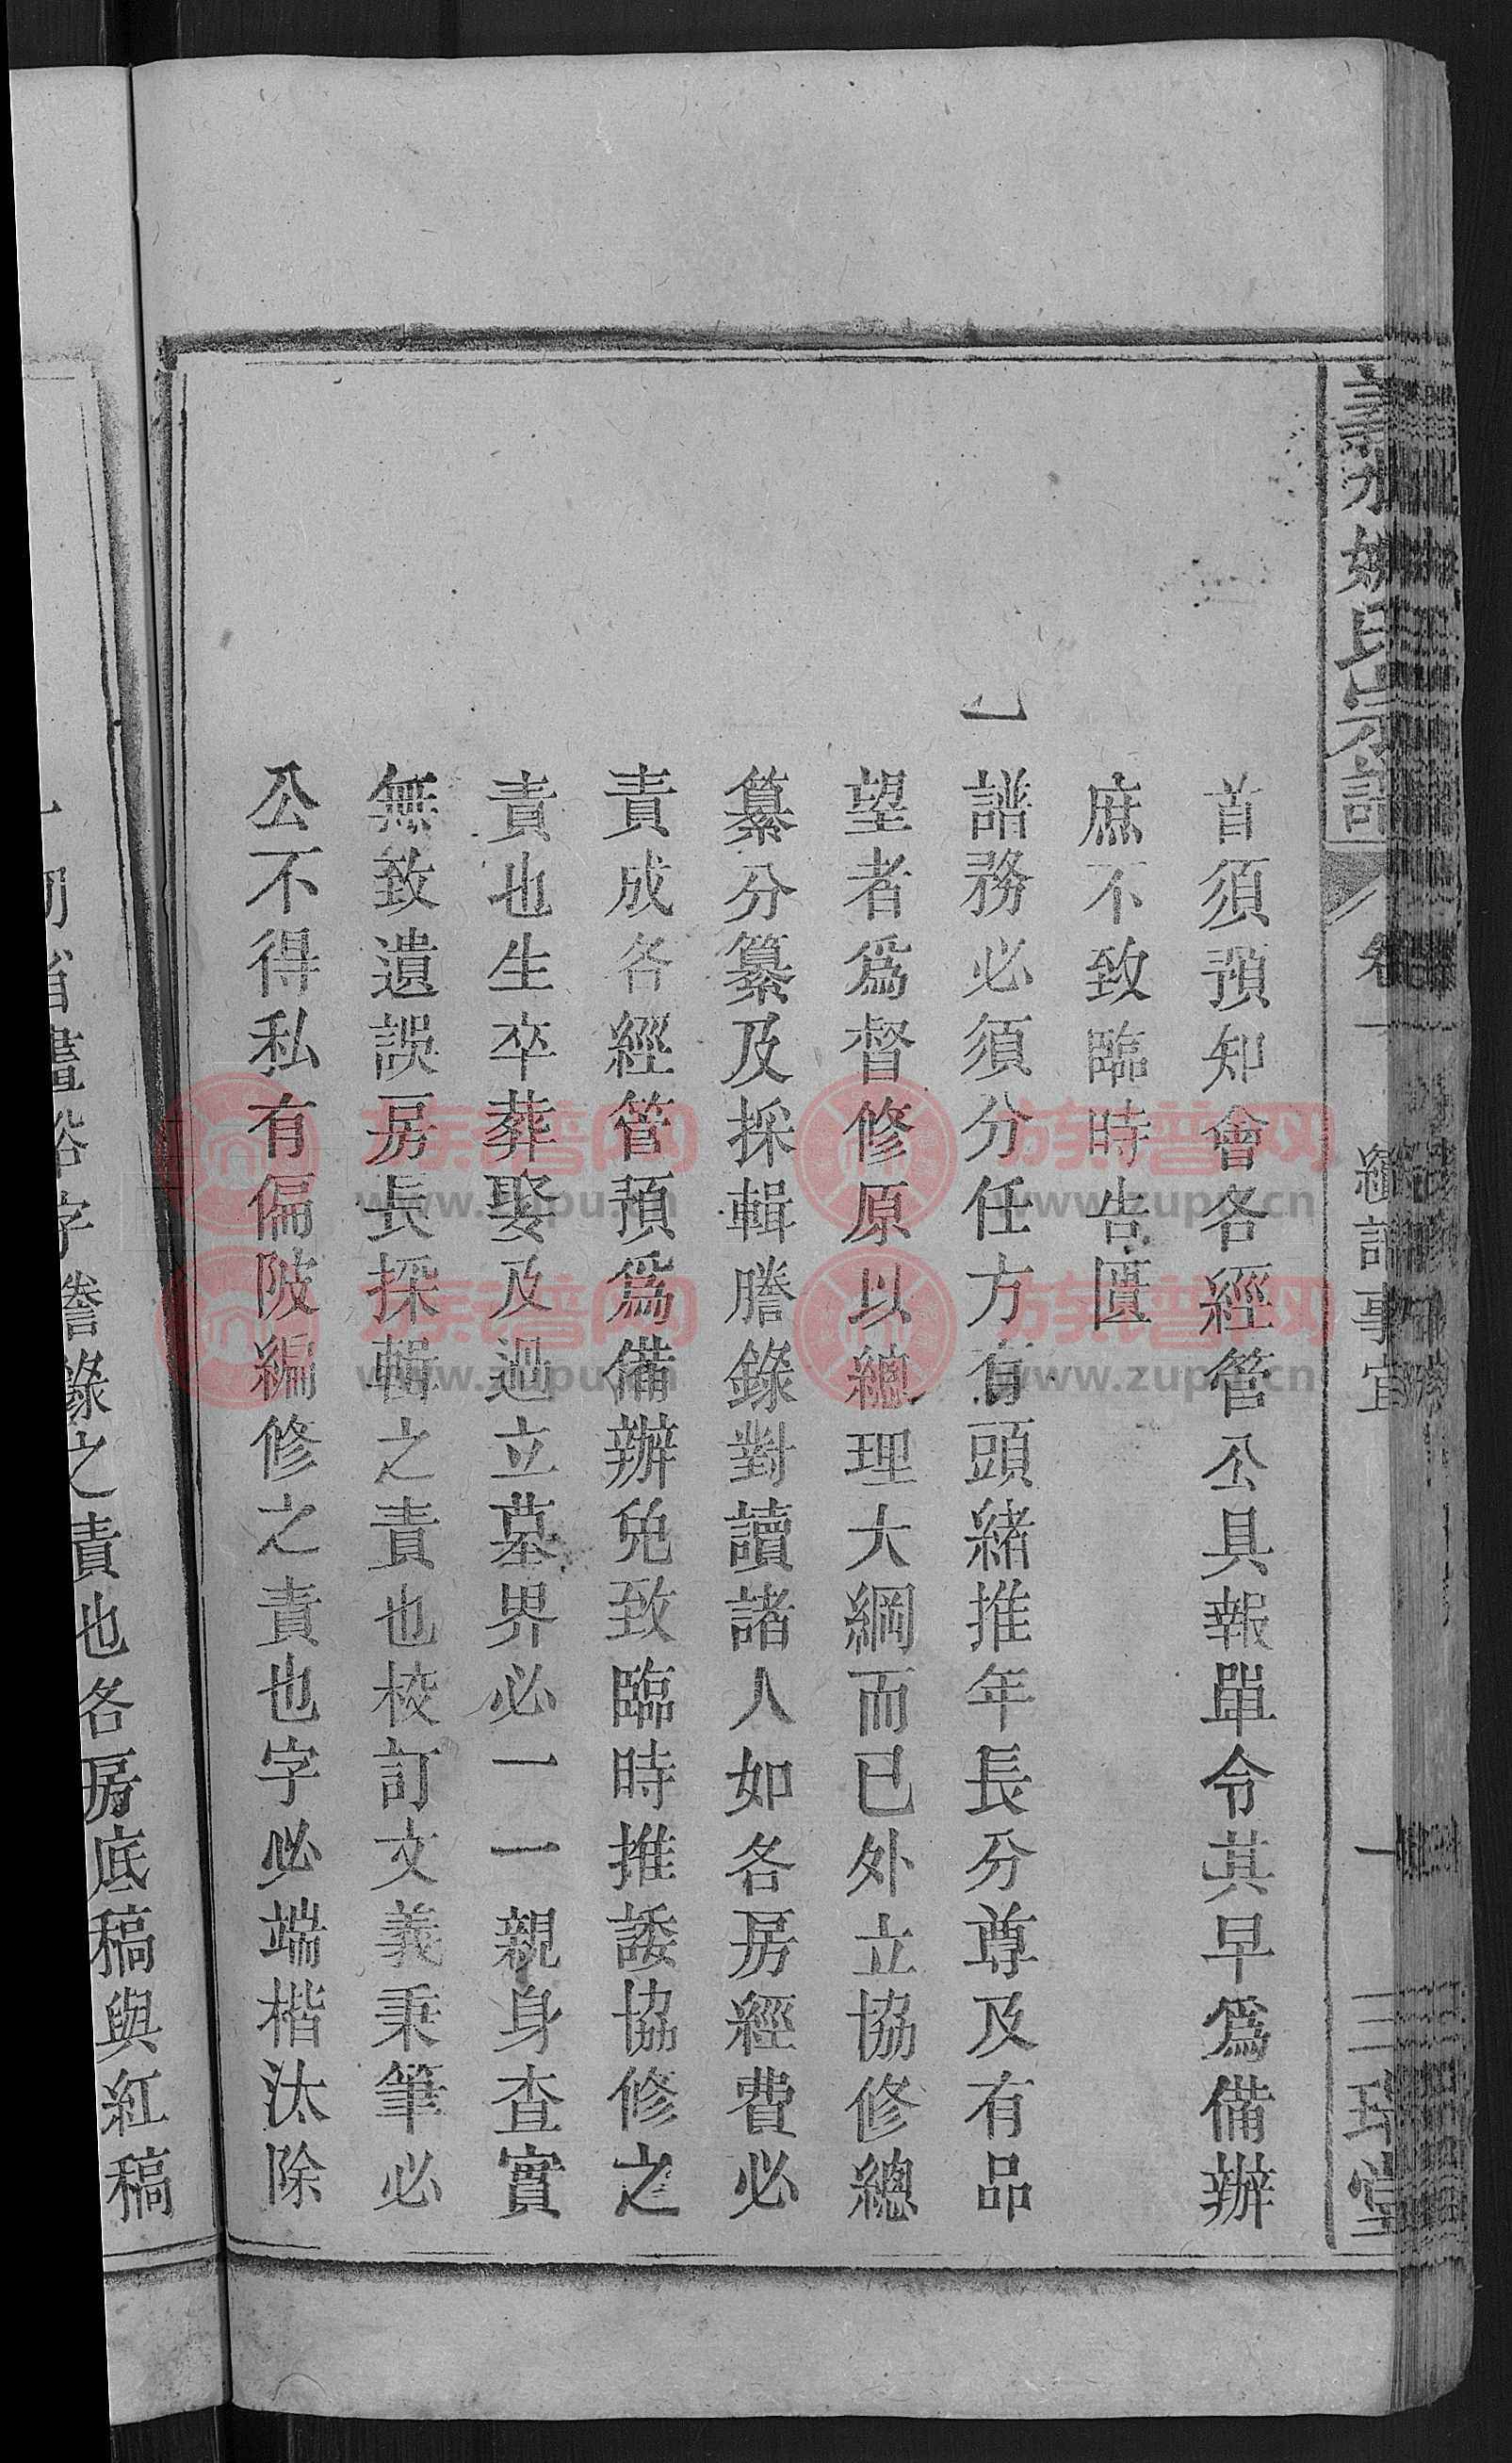 氏宗譜
卷一
續譜事宜
一
三
堂
首須預知會各經管公具報單令其早爲備辦
庶不致臨時告匱
一譜務必須分任方有頭緒推年長分尊及有品
望者爲督修原以總理大綱而已外立協修總
纂分纂及採輯謄錄對讀諸人如各房經費必
責成各經管預爲備辦免致臨時推諉協修之
責也生卒葬娶及過立墓界必一一親身查實
無致遺誤房長採輯之責也校訂文義秉筆必
公不得私有偏陂編修之責也字必端楷汰除
字謄錄之責也各房底稿與紅稿
族谱网
www.zupu.cn
族谱网
www.zupu.cn
族谱网
www.zupu.cn
族谱网
www.zupu.cn